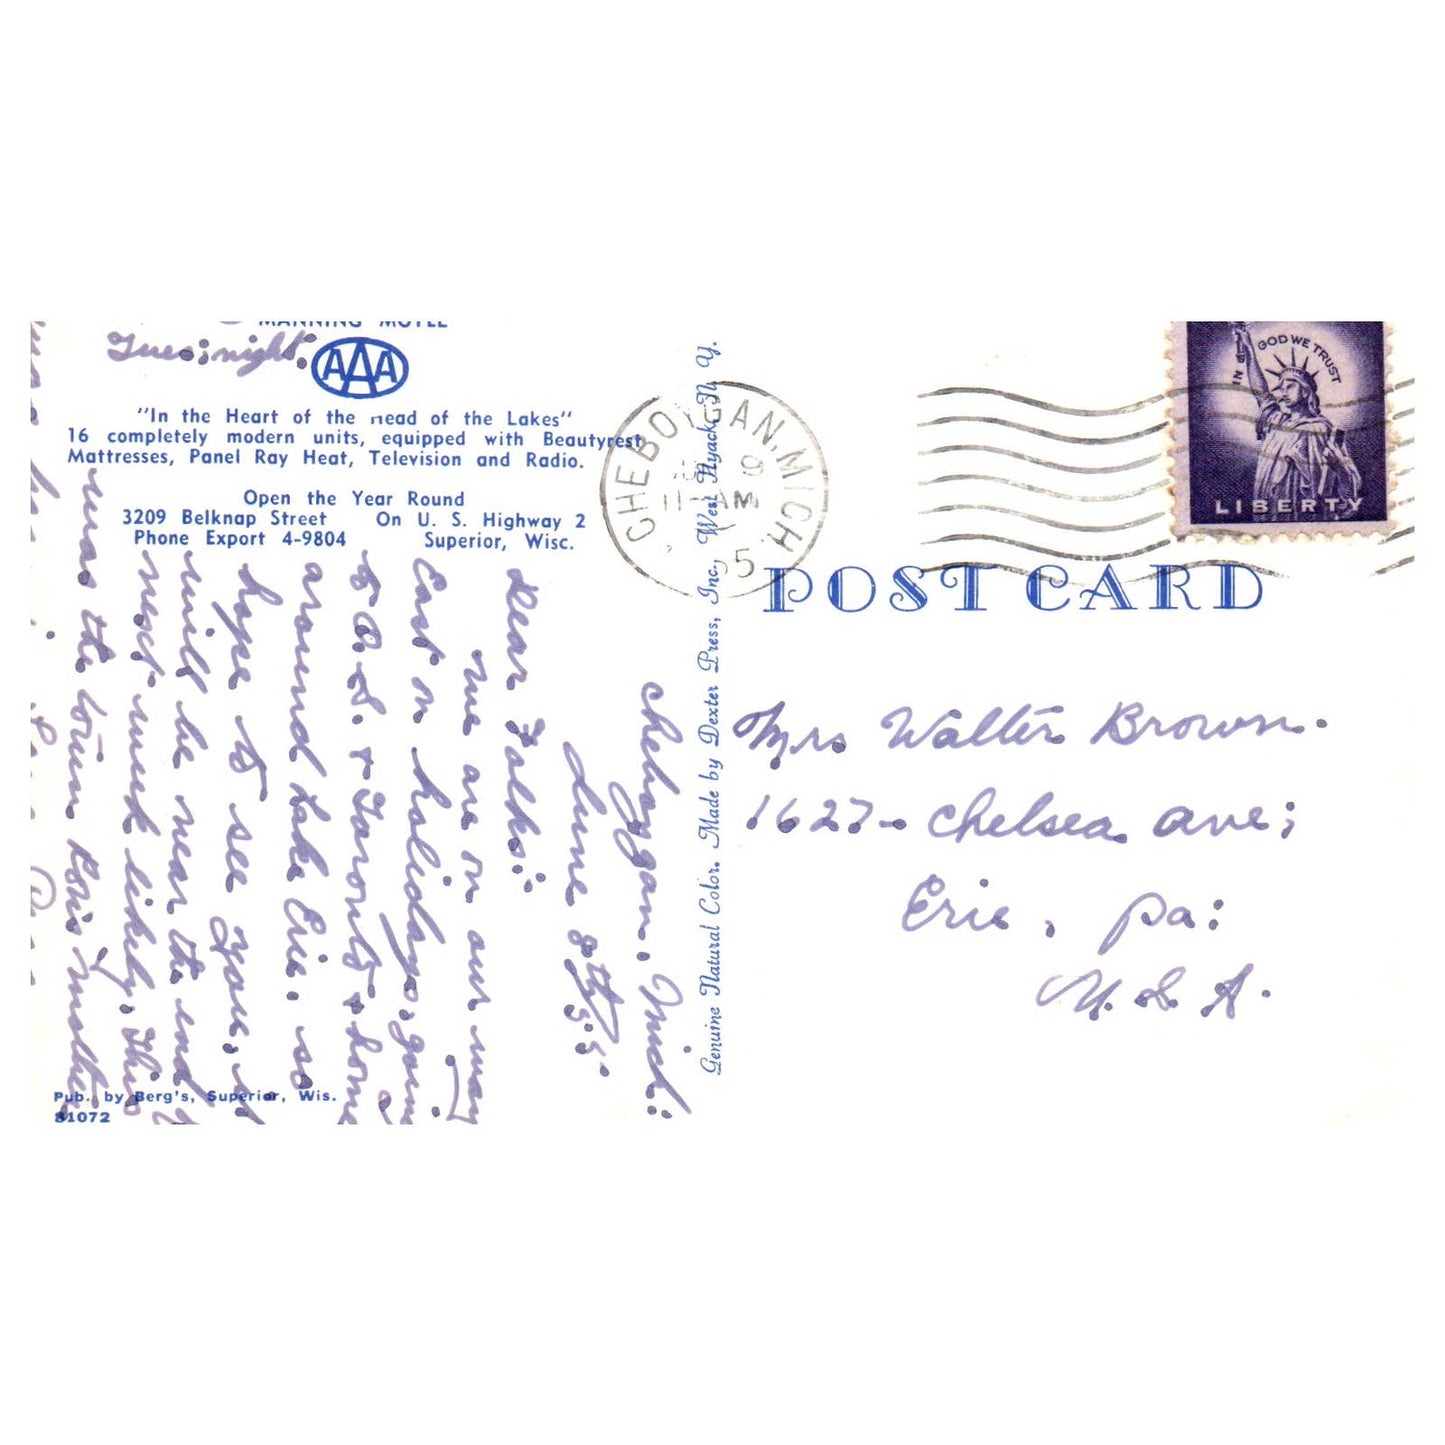 MANNING MOTEL
Tues; night.
AAA
"In the Heart of the Head of the Lakes"
16 completely modern units, equipped with Beautyrest
Mattresses, Panel Ray Heat, Television and Radio.
Open the Year Round
3209 Belknap Street On U. S. Highway 2
Phone Export 4-9804 Superior, Wisc.
Cheboygan, Mich:
June 8th,
Dear Folks:
we are on our way
East on holidays, going
to O.S. + Toronto + home
around Lake Erie. so
hope to see you,
will be near the end
next week likely. This
was the town Rob's mother
Pub. by Berg's, Superior, Wis.
81072
Genuine Natural Color. Made by Dexter Press, Inc., West Nyack, N. Y.
CHEBOYGAN, MICH.
11 AM
5
IN GOD WE TRUST
LIBERTY
POST CARD
Mrs Walter Brown.
1627- Chelsea Ave;
Erie, Pa:
U.S.A.